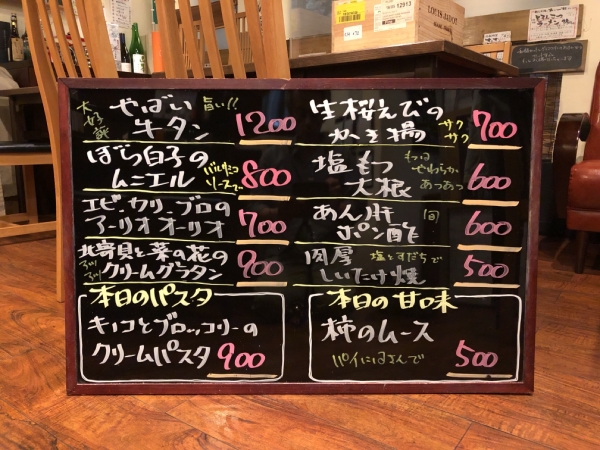 大好評
やばい 旨い!!
牛タン 1200
ぼら白子の
ムニエル バルサミコソースで 800
エビ、カリ、ブロの
アーリオオーリオ 700
北寄貝と菜の花の
アツアツ クリームグラタン 900
本日のパスタ
キノコとブロッコリーの
クリームパスタ 900
生桜えびの
かき揚 サクサク 700
塩もつ
大根 もつはやわらかあつあつ 600
あん肝
ポン酢 600
肉厚 塩とすだちで
しいたけ焼 500
本日の甘味
柿のムース
パイにはさんで 500
LOUIS JADOT